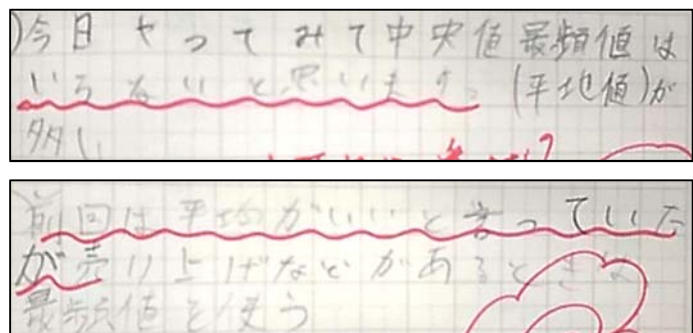 今日やってみて中央値最頻値は
いらないと思います。(平地値)が
多い
前回は平均がいいと言っていた
が売り上げなどがあるときは
最頻値を使う